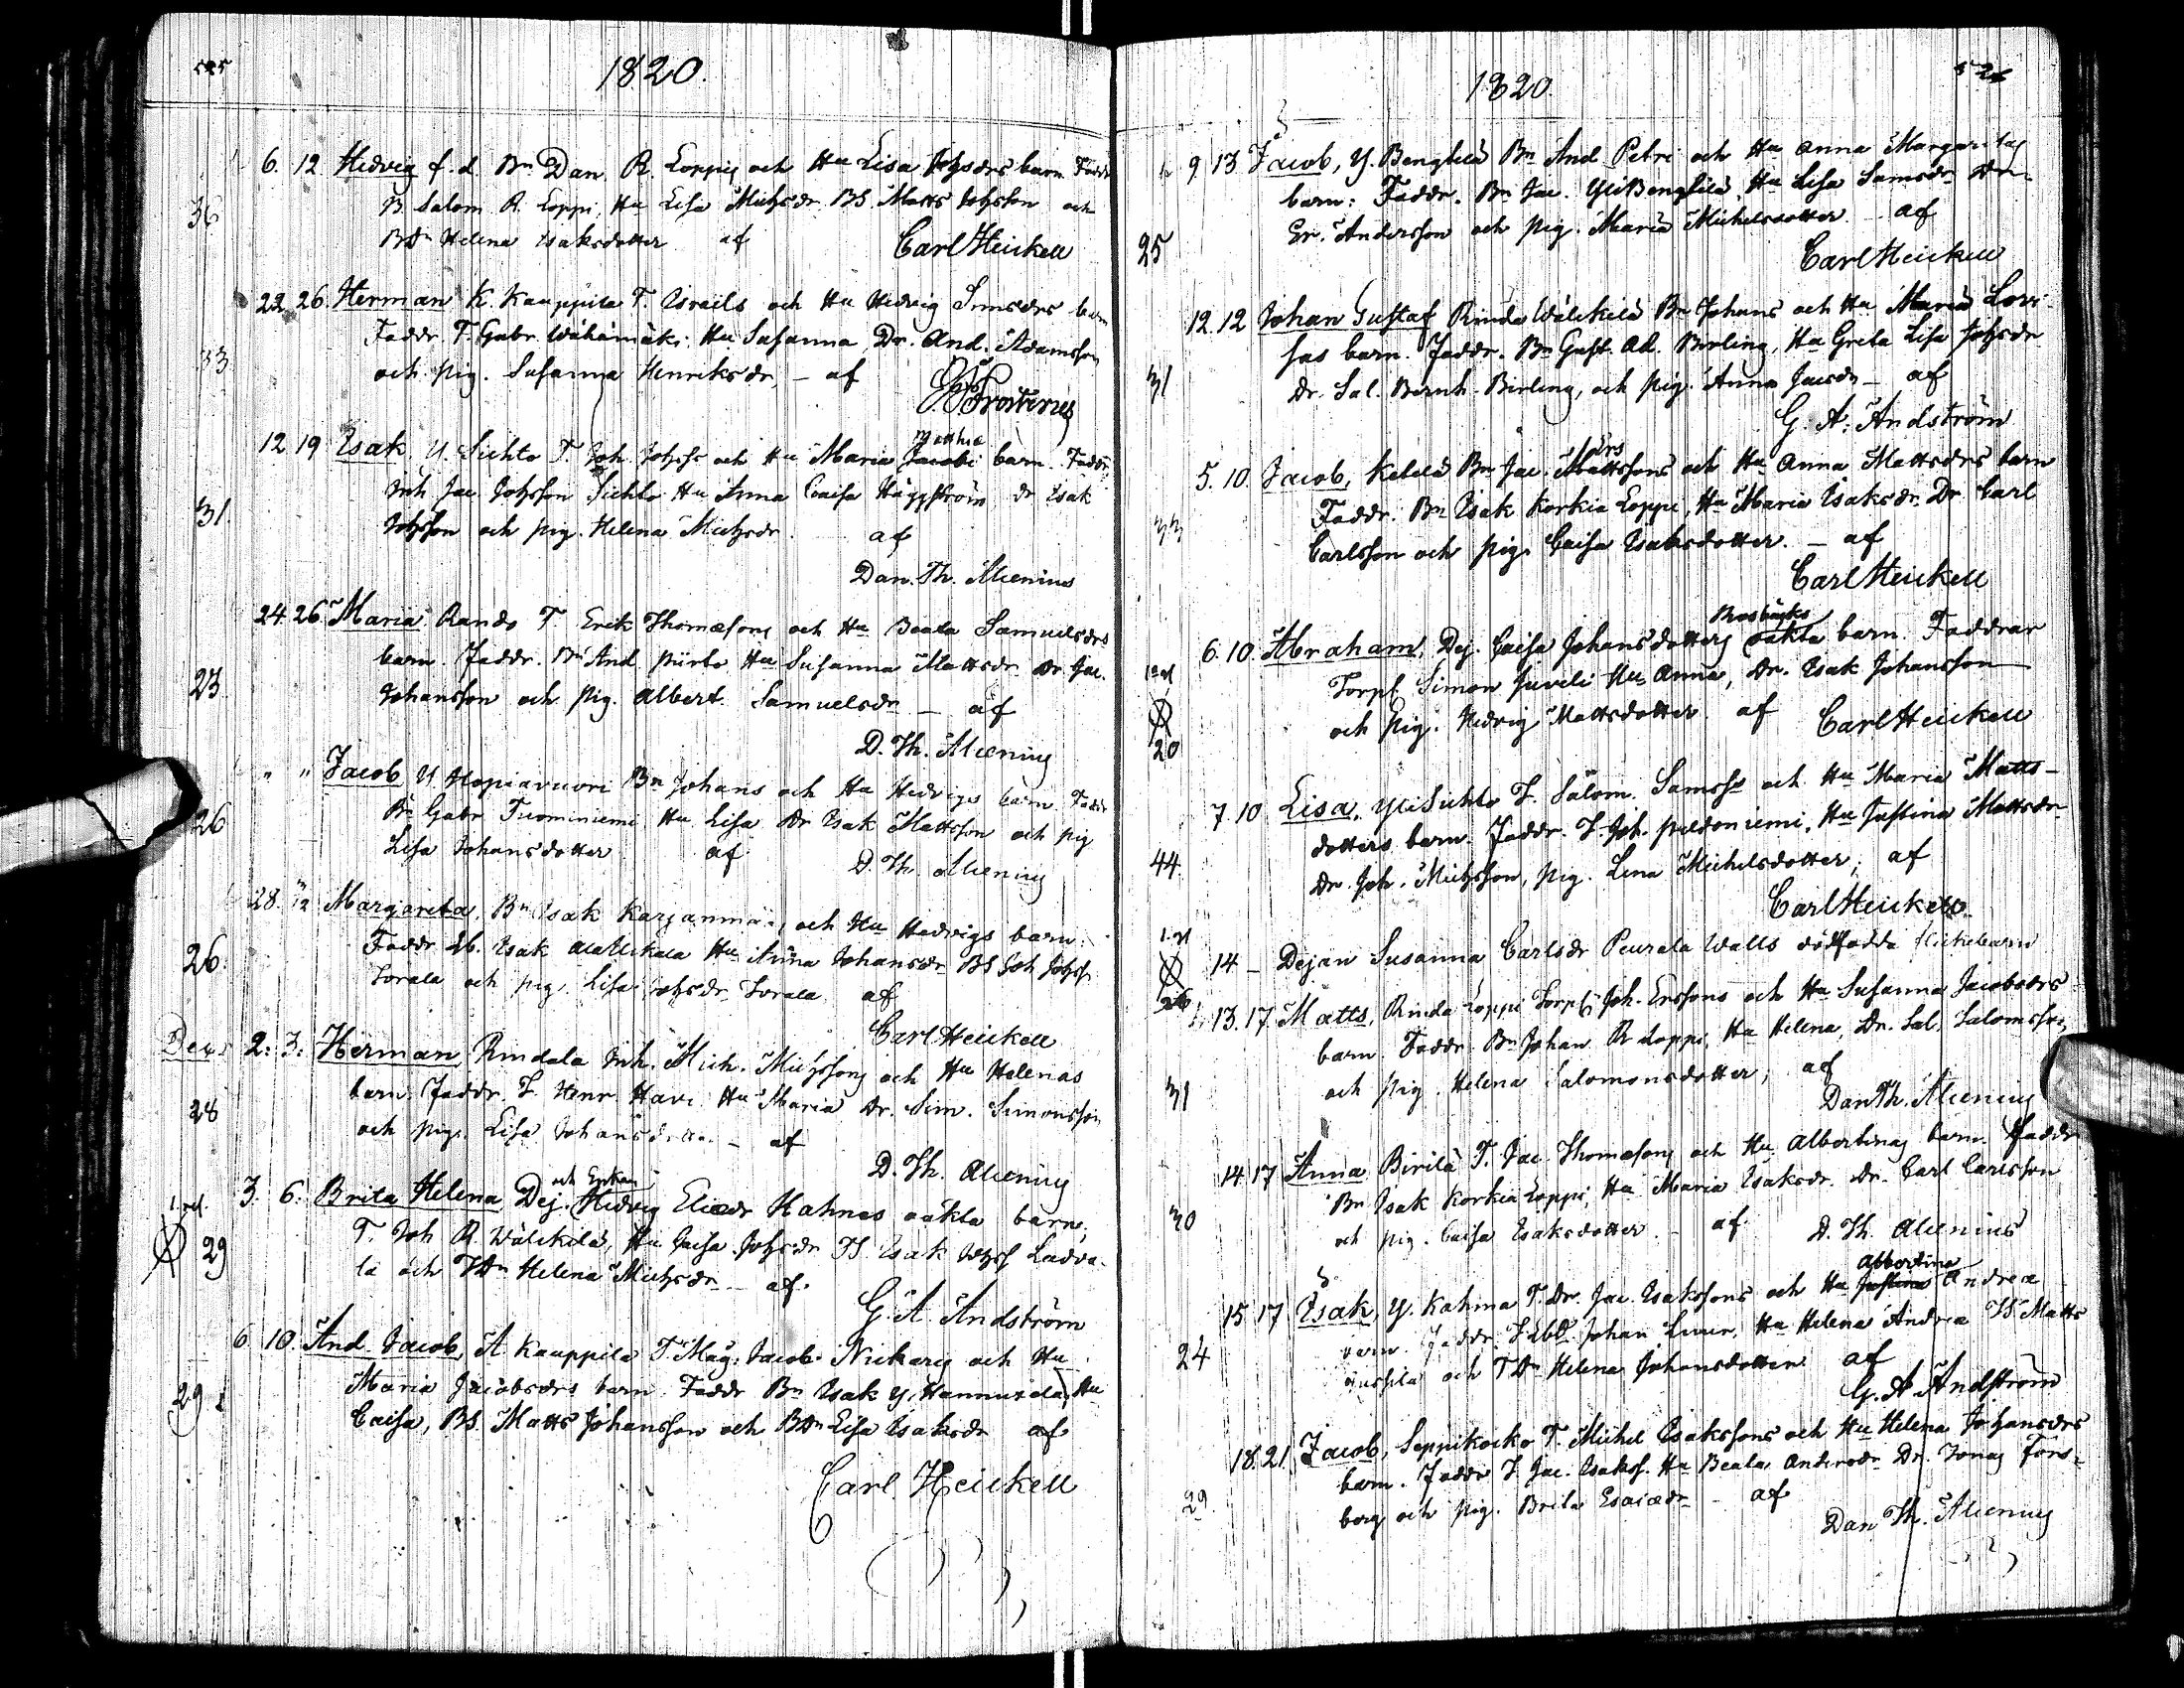 525
1820.
6. 12 Hedvig f. d. Bn Dan. R. Loppis och Hu Lisa Johsdrs barn. Faddr
36 B. Salom. R. Loppi, Hu Lisa Michsdr, BS. Matts Johsson och
BDr Helena Isaksdotter af Carl Heickell
22. 26. Herman K. Kauppila T. Israels och Hu Hedvig Simsdrs barn
Faddr. T. Gabr. Wähämäki, Hu Susanna, Dr. And. Adamsson
33 och pig. Susanna Henriksdr, - af
Frosterus
Matthiæ
12 19 Isak. Y. Sichto T. Joh. Johss och Hu Maria Jacobi barn. Faddr.
Inh. Jac. Johsson Sichto Hu Anna Caisa Häggström dr Isak
31. Johsson och pig. Helena Michsdr af
Dan. Th. Alcenius
24 26 Maria Rando T Erik Thomæsons och Hu Beata Samuelsdrs
barn. Faddr. Bn And. Piirto Hu Susanna Mattsdr Dr Jac.
23 Johansson och pig. Albert. Samuelsdr - af
D. Th. Alcenius
" " Jacob Y Hopiavuori Bn Johans och Hu Hedvigs barn Faddr
26 Bn Gabr Tuominiemi Hu Lisa Dr Isak Mattsson och pig
Lisa Johansdotter af D. Th Alcenius
28. Margareta, Bn Isak Karjanmä, och Hu Hedvigs barn:
26. Faddr. Isak Hu Anna Johansdr BS Joh Johss
Sorala och pig. Lisa Johsdr Sorala af
Carl Heickell
Decbr 2. 3. Herman Rindala Inh. Mich. Michssons och Hu Helenas
28 barn. Faddr. T. Henr. Havi Hu Maria Dr. Sim. Simonsson
och pig. Lisa Johansdotter - af
D. Th. Alcenius
och Enkan
3. 6. Brita Helena Dej. Hedvig Eliædr Kahnas oäkta barn,
29 T. Joh R. Wälikilä, Hu Caisa Johsdr TS. Isak Johss Ladva-
la och TDr Helena Michsdr - af.
G. A Andström
6. 10. And. Jacob, A Kauppila T. Mag. Jacobi Nickars och Hu
29 Maria Jacobsdrs barn. Faddr Bn Isak Y. Hannuxela, Hu
Caisa, BS. Matts Johansson och BDr Lisa Isaksdr af
Carl Heickell
526
1820.
9. 13 Jacob, Y. Bengtilä Bn And. Petri och Hu Anna Margaretas
barn: Faddr. Bn Jac. YliBengtilä Hu Lisa Samsdr Dr
25 Er. Andersson och pig. Maria Michelsdotter - af
Carl Heickell
12. 12 Johan Gustaf Rinda Wälikilä Bn Johans och Hu Maria Lovi-
sas barn. Faddr. Bn Gust. Ad. Birling, Hu Greta Lisa Johsdr
31 Dr. Sal. Bernh. Birling, och pig. Anna Jacsdr - af
G. A. Andström
Ers
5. 10. Jacob, Kelelä Bn Jac. Mattssons och Hu Anna Mattsdrs barn
33 Faddr. Bn Isak Korkia Loppi, Hu Maria Isaksdr. Dr. Carl
Carlsson och pig. Caisa Isaksdotter. - af
Carl Heickell
6. 10. Abraham, Dej. Caisa Johansdotters oäkta barn. Faddrar
Torp. Simon Juveli Hu Anna, Dr. Isak Johansson
20 och pig. Hedvig Mattsdotter af Carl Heickell
7. 10 Lisa, YliSichto T. Salom. Samss och Hu Maria Matts-
dotters barn. Faddr. T. Joh. Peldoniemi, Hu Justina Mattsdr
44. Dr. Joh. Michsson, pig. Lena Michelsdotter; af
Carl Heickell
14 - Dejan Susanna Carlsdr Peurala Walls dödfödda flickebarn
26
13. 17. Matts, Rinda Loppi Torp. Joh. Erssons och Hu Susanna Jacobsdrs
barn. Faddr. Bn Johan R Loppi, Hu Helena, Dr. Sal. Salomsson
31 och pig. Helena Salomonsdotter, af
Dan Th. Alcenius
14 17 Anna Birilä T. Jac. Thomæsons och Hu Albertinas barn. Faddr
30 Bn Isak Korkia Loppi, Hu Maria Isaksdr. Dr. Carl Carlsson
och pig. Caisa Isaksdotter. - af D. Th. Alcenius
Albertina
15 17 Isak, Y. Kahma T. Dr. Jac. Isakssons och Hu Justina Andreæ
24 barn. Faddr. Johan Hu Helena Andreæ TS Matts
och TDr Helena Johansdotter af
G. A Andström
18. 21. Jacob, Seppikocko T. Michel Isakssons och Hu Helena Johansdrs
29 barn. Faddr T. Jac. Isakss. Hu Beata Andersdr Dr. Jonas Fors-
borg och pig. Brita Esaiædr - af
Dan Th. Alcenius